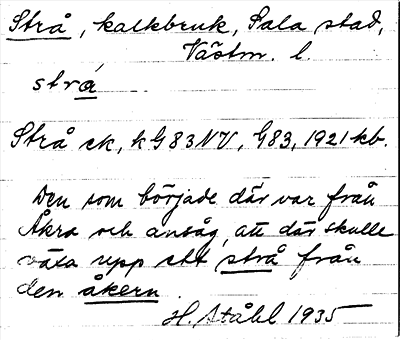 Strå, kalkbruk, Sala stad,
Västm. l.
strå
Strå ek, kG83NV, G83, 1921 kb.
Den som började där var från
Åkra och ansåg, att där skulle
växa upp ett strå från
den åkern.
H. Ståhl 1935